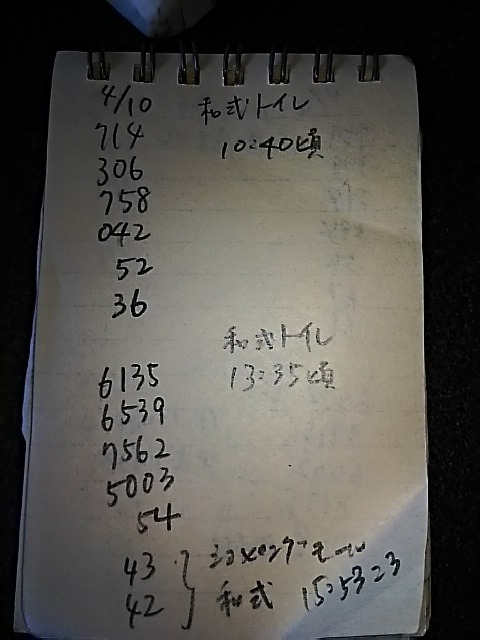 4/10 和式トイレ
714 10:40頃
306
758
042
52
36
和式トイレ
6135 13:35頃
6539
7562
5003
54
43
42 和式 15:53